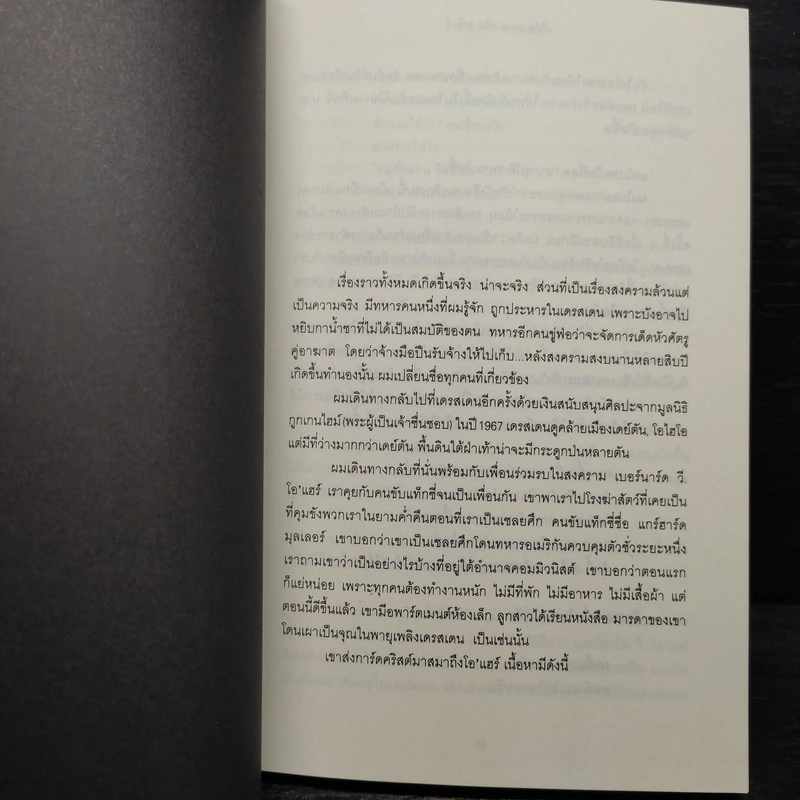 เรื่องราวทั้งหมดเกิดขึ้นจริง น่าจะจริง ส่วนที่เป็นเรื่องสงครามล้วนแต่
เป็นความจริง มีทหารคนหนึ่งที่ผมรู้จัก ถูกประหารในเดรสเดน เพราะบังอาจไป
หยิบกาน้ำชาที่ไม่ได้เป็นสมบัติของตน ทหารอีกคนขู่ฟ่อว่าจะจัดการเด็ดหัวศัตรู
คู่อาฆาต โดยว่าจ้างมือปืนรับจ้างให้ไปเก็บ...หลังสงครามสงบนานหลายสิบปี
เกิดขึ้นทำนองนั้น ผมเปลี่ยนชื่อทุกคนที่เกี่ยวข้อง
ผมเดินทางกลับไปที่เดรสเดนอีกครั้งด้วยเงินสนับสนุนศิลปะจากมูลนิธิ
กูกเกนไฮม์(พระผู้เป็นเจ้าชื่นชอบ) ในปี 1967 เดรสเดนดูคล้ายเมืองเดย์ตัน, โอไฮโอ
แต่มีที่ว่างมากกว่าเดย์ตัน พื้นดินใต้ฝ่าเท้าน่าจะมีกระดูกป่นหลายตัน
ผมเดินทางกลับที่นั่นพร้อมกับเพื่อนร่วมรบในสงคราม เบอร์นาร์ด วี.
โอ'แฮร์ เราคุยกับคนขับแท็กซี่จนเป็นเพื่อนกัน เขาพาเราไปโรงฆ่าสัตว์ที่เคยเป็น
ที่คุมขังพวกเราในยามค่ำคืนตอนที่เราเป็นเชลยศึก คนขับแท็กซี่ชื่อ แกร์ฮาร์ด
มุลเลอร์ เขาบอกว่าเขาเป็นเชลยศึกโดนทหารอเมริกันควบคุมตัวชั่วระยะหนึ่ง
เราถามเขาว่าเป็นอย่างไรบ้างที่อยู่ใต้อำนาจคอมมิวนิสต์ เขาบอกว่าตอนแรก
ก็แย่หน่อย เพราะทุกคนต้องทำงานหนัก ไม่มีที่พัก ไม่มีอาหาร ไม่มีเสื้อผ้า แต่
ตอนนี้ดีขึ้นแล้ว เขามีอพาร์ตเมนต์ห้องเล็ก ลูกสาวได้เรียนหนังสือ มารดาของเขา
โดนเผาเป็นจุณในพายุเพลิงเดรสเดน เป็นเช่นนั้น
เขาส่งการ์ดคริสต์มาสมาถึงโอ'แฮร์ เนื้อหามีดังนี้